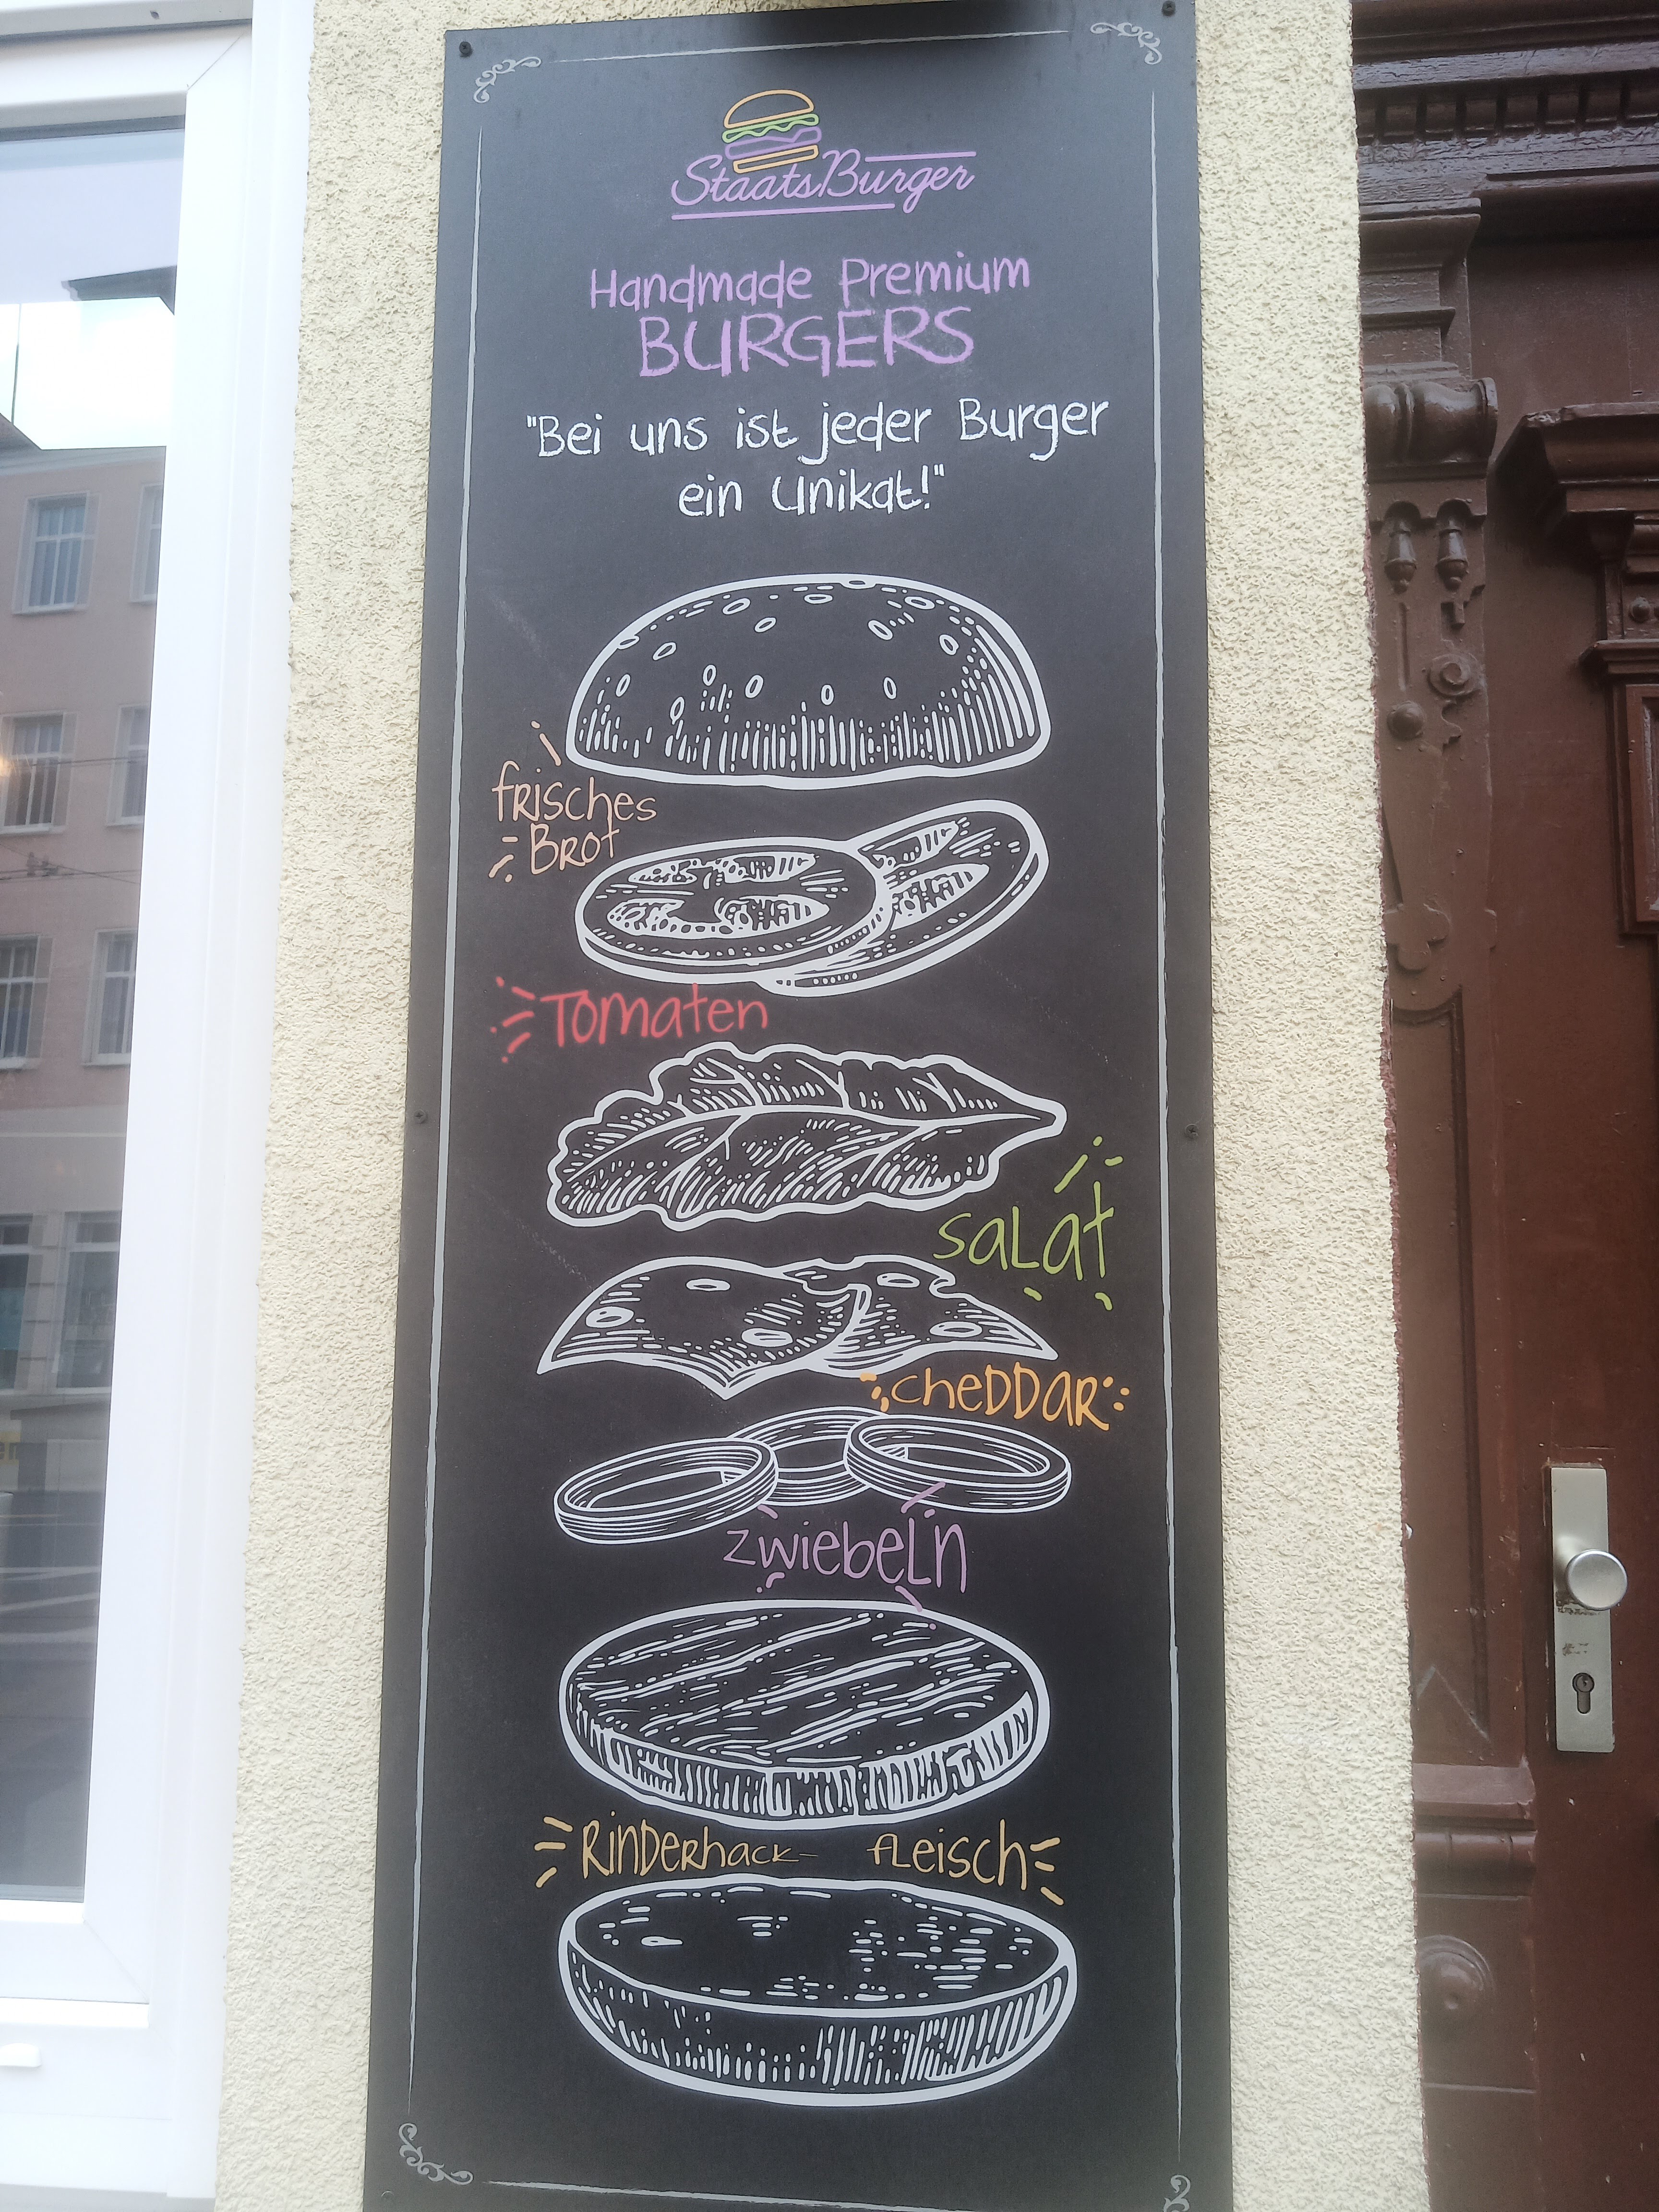 StaatsBurger
Handmade Premium
BURGERS
"Bei uns ist jeder Burger
ein Unikat!"
frisches
Brot
Tomaten
Salat
Cheddar
Zwiebeln
Rinderhack- fleisch